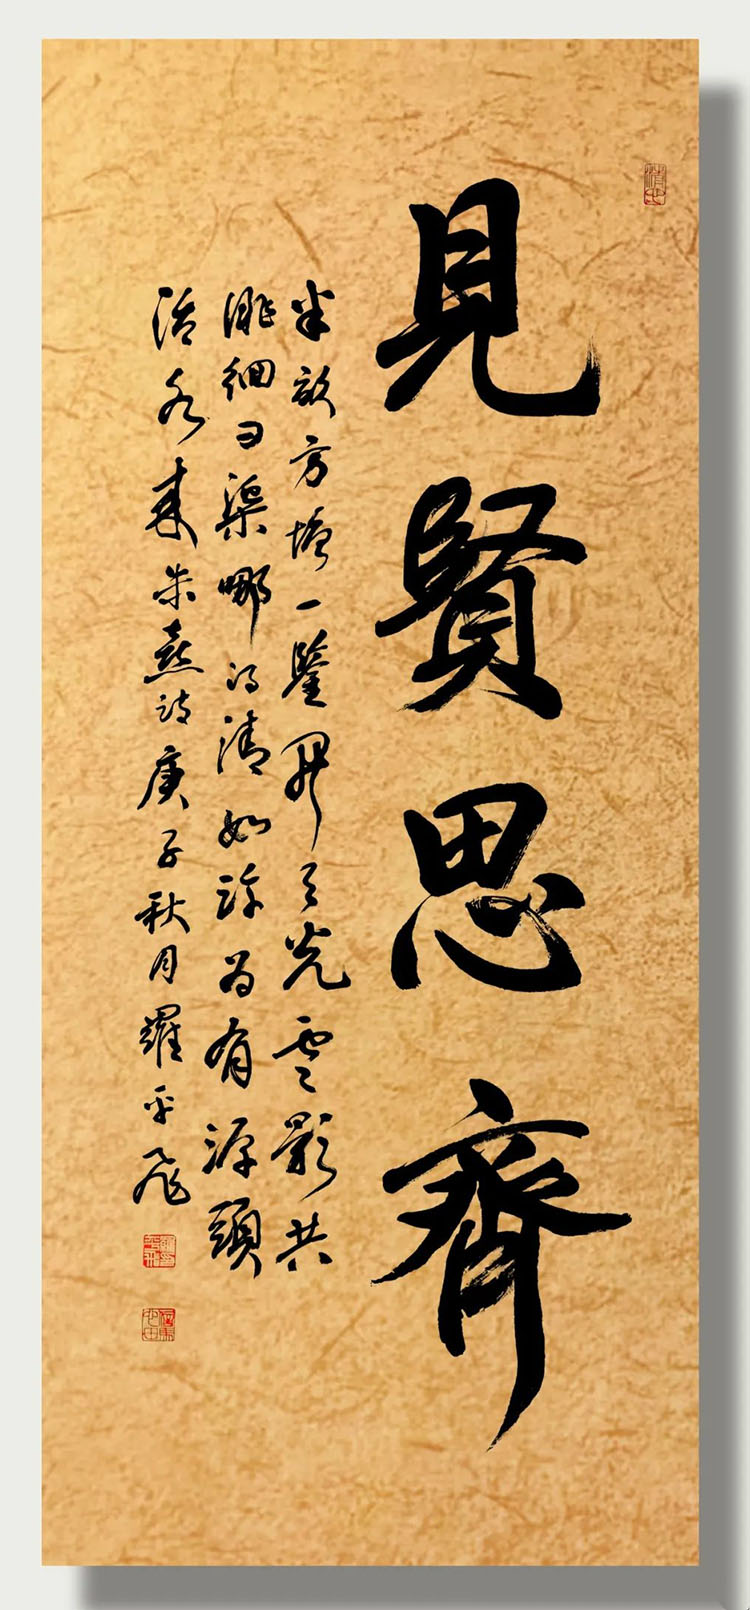 見賢思齊
半畝方塘一鑒開天光雲影共
徘徊問渠哪得清如許為有源頭
活水來朱熹詩庚子秋月羅平飛